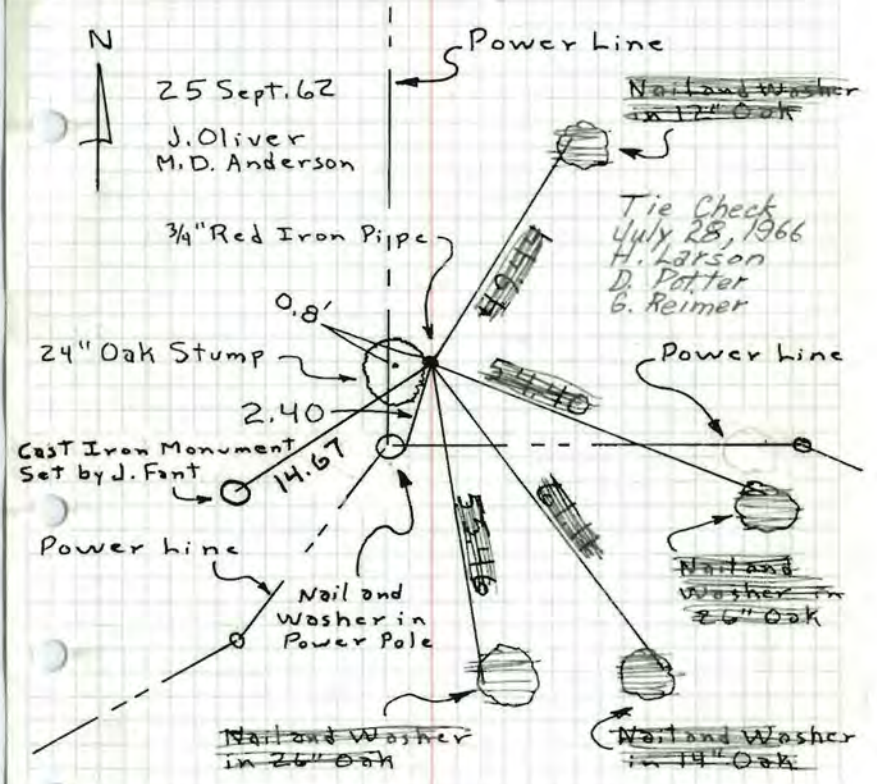 N
Power Line
25 Sept. 62
J. Oliver
M.D. Anderson
Nail and Washer
in 12" Oak
Tie Check
July 28, 1966
H. Larson
D. Potter
G. Reimer
3/4" Red Iron Pipe
49.44
0.8'
24" Oak Stump
54.40
Power Line
2.40
Cast Iron Monument
Set by J. Fant
14.67
Power Line
Nail and
Washer in
Power Pole
Nail and
Washer in
26" Oak
Nail and Washer
in 26" Oak
Nail and Washer
in 14" Oak